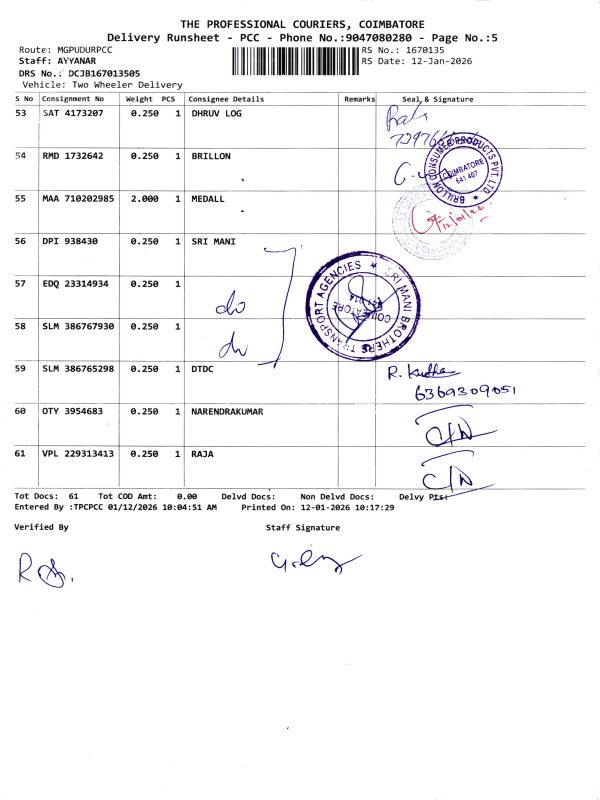 THE PROFESSIONAL COURIERS, COIMBATORE
Delivery Runsheet - PCC - Phone No.:9047080280 - Page No.:5
Route: MGPUDURPCC RS No.: 1670135
Staff: AYYANAR RS Date: 12-Jan-2026
DRS No.: DCJB167013505
Vehicle: Two Wheeler Delivery
S No Consignment No Weight PCS Consignee Details Remarks Seal & Signature
53 SAT 4173207 0.250 1 DHRUV LOG
54 RMD 1732642 0.250 1 BRILLON
BRILLON CONSUMER PRODUCTS PVT. LTD
COIMBATORE
641 407
55 MAA 710202985 2.000 1 MEDALL
56 DPI 938430 0.250 1 SRI MANI
SRI MANI BROTHERS TRANSPORT AGENCIES
57 EDQ 23314934 0.250 1 do
58 SLM 386767930 0.250 1 do
59 SLM 386765298 0.250 1 DTDC
6369309051
60 OTY 3954683 0.250 1 NARENDRAKUMAR C/N
61 VPL 229313413 0.250 1 RAJA C/N
Tot Docs: 61 Tot COD Amt: 0.00 Delvd Docs: Non Delvd Docs: Delvy Pts:
Entered By :TPCPCC 01/12/2026 10:04:51 AM Printed On: 12-01-2026 10:17:29
Verified By Staff Signature